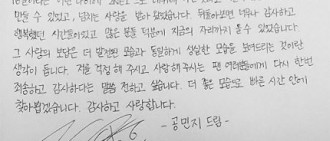 만들 수 있었고, 넘치는 사랑을 받아 왔었습니다. 뒤돌아보면 너무나 감사하고
행복했던 시간들이었고 많은 분들 덕분에 지금의 자리까지 올 수 있었습니다.
그 사랑의 보답은 더 발전된 모습과 동일하게 성실한 모습을 보여드리는 것이란
생각이 듭니다. 저를 걱정해 주시고 사랑해주시는 팬 여러분들에게 다시 한번
죄송하고 감사하다는 말씀 전하고 싶습니다. 더 좋은 모습으로 빠른 시간 안에
찾아뵙겠습니다. 감사하고 사랑합니다.
- 공민지 드림 -